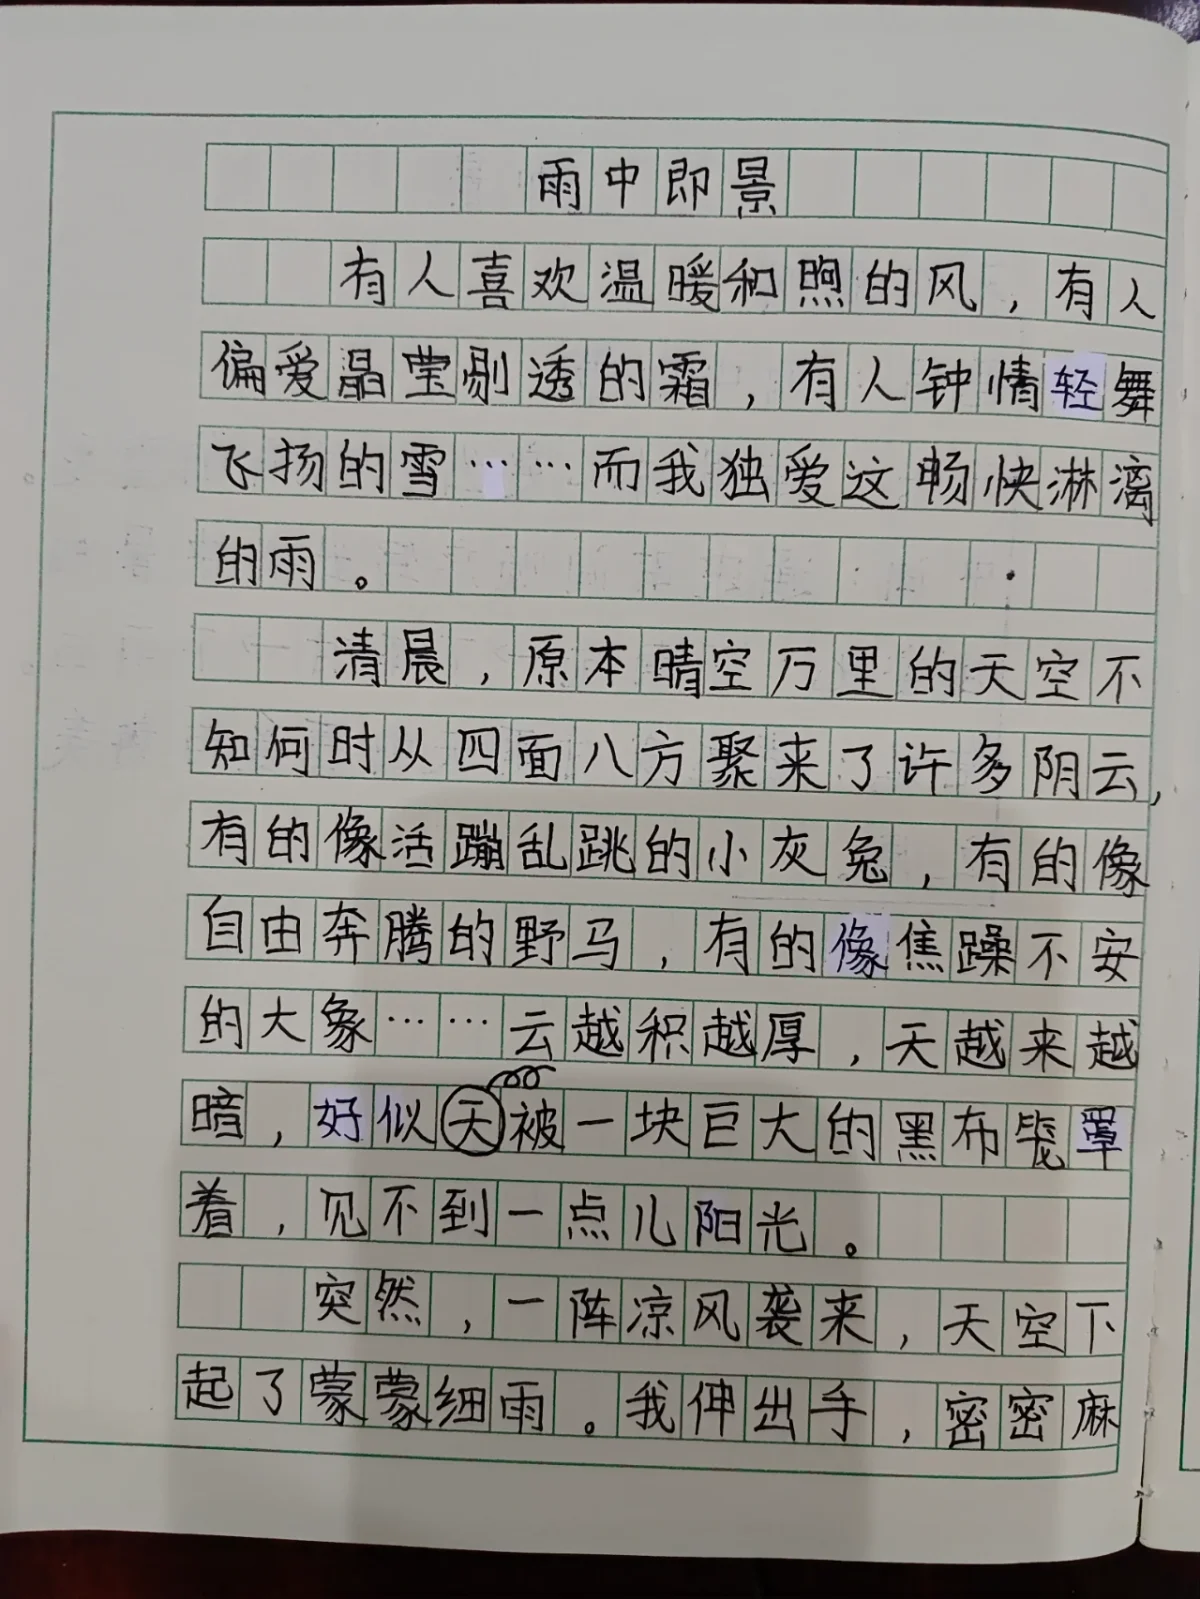 雨中即景
有人喜欢温暖和煦的风，有人
偏爱晶莹剔透的霜，有人钟情轻舞
飞扬的雪……而我独爱这畅快淋漓
的雨。
清晨，原本晴空万里的天空不
知何时从四面八方聚来了许多阴云，
有的像活蹦乱跳的小灰兔，有的像
自由奔腾的野马，有的像焦躁不安
的大象……云越积越厚，天越来越
暗，好似天被一块巨大的黑布毯罩
着，见不到一点儿阳光。
突然，一阵凉风袭来，天空下
起了蒙蒙细雨。我伸出手，密密麻